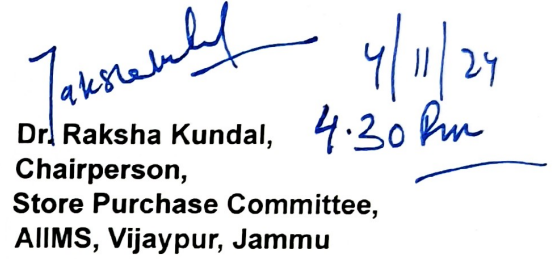 Rakshakundal
4/11/24
4.30 Pm
Dr. Raksha Kundal,
Chairperson,
Store Purchase Committee,
AIIMS, Vijaypur, Jammu